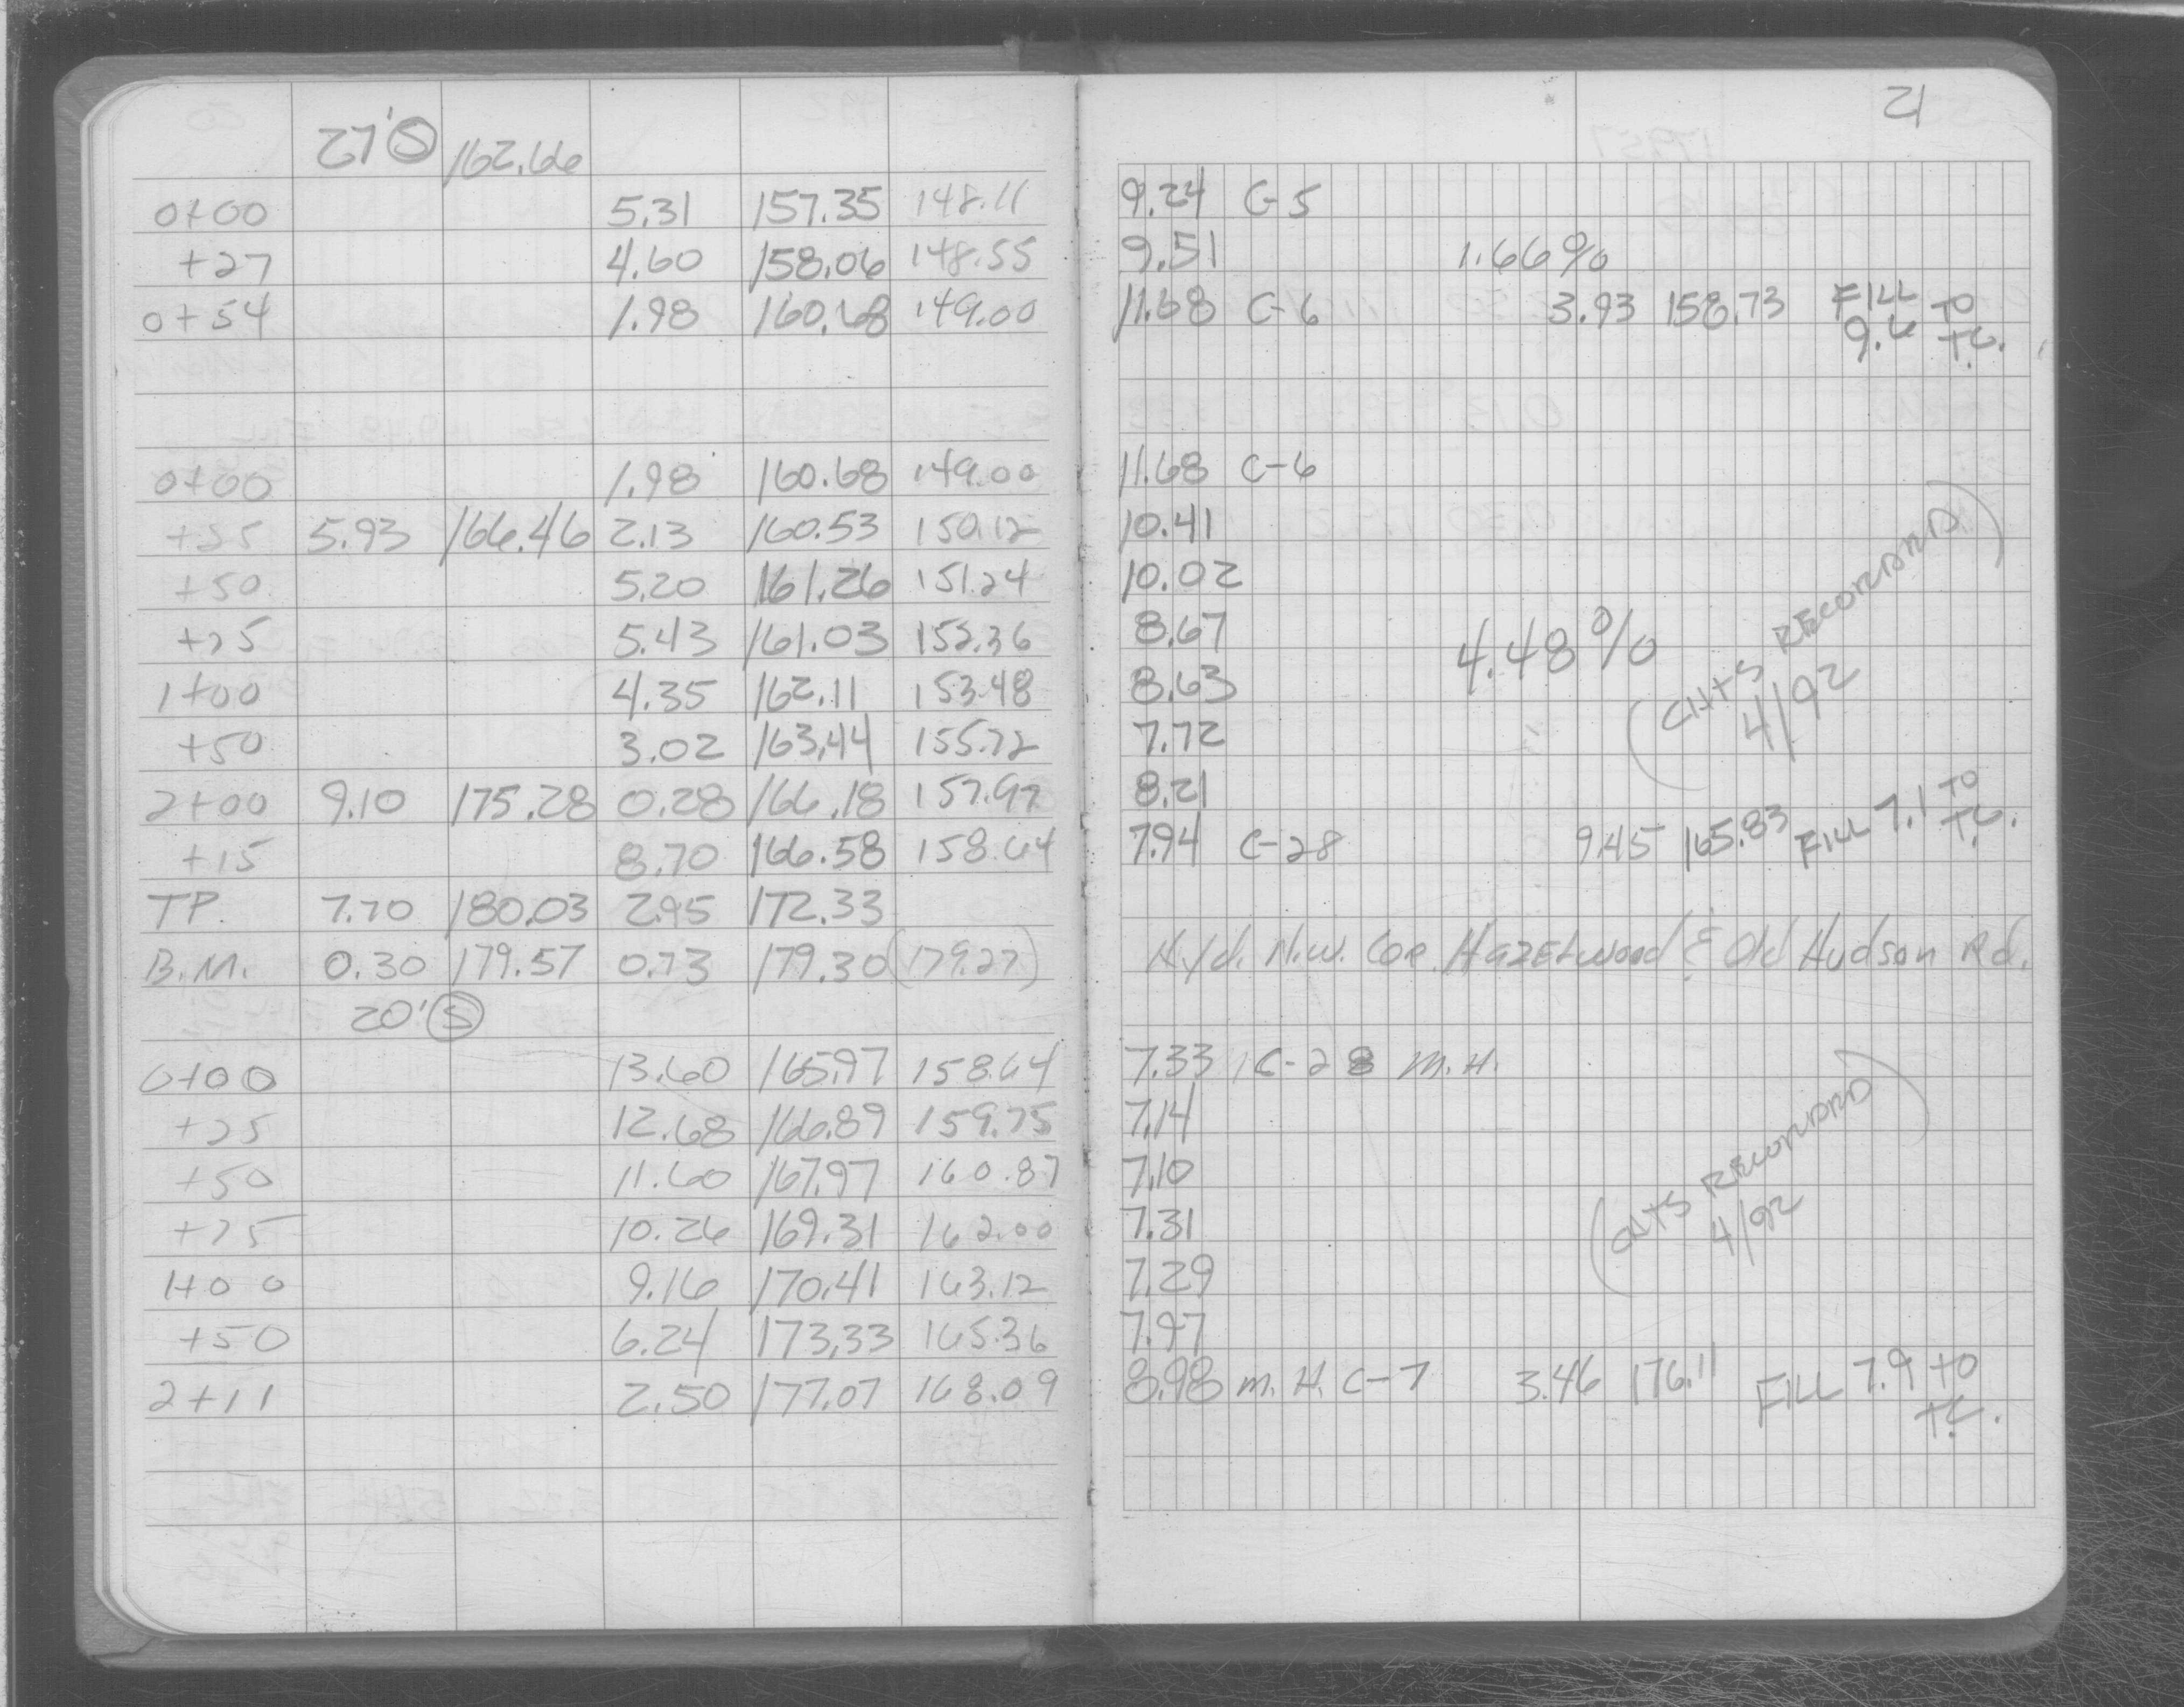 21
27' S 162.66
0+00 5.31 157.35 148.11 9.24 C-5
+27 4.60 158.06 148.55 9.51 1.66%
0+54 1.98 160.68 149.00 11.68 C-6 3.93 158.73 FILL 9.6 TO T.C.
0+00 1.98 160.68 149.00 11.68 C-6
+25 5.93 166.46 2.13 160.53 150.12 10.41
+50 5.20 161.26 151.24 10.02
+75 5.43 161.03 152.36 8.67
4.48%
1+00 4.35 162.11 153.48 8.63
(CHTS RECORDARD)
4/92
+50 3.02 163.44 155.72 7.72
2+00 9.10 175.28 0.28 166.18 157.97 8.21
+15 8.70 166.58 158.64 7.94 C-28 9.45 165.83 FILL 7.1 TO T.C.
T.P. 7.70 180.03 2.95 172.33
B.M. 0.30 179.57 0.73 179.30 (179.27) Hyd. N.W. Cor. Hazelwood & Old Hudson Rd.
20' S
0+00 13.60 165.97 158.64 7.33 C-28 M.H.
+25 12.68 166.89 159.75 7.14
+50 11.60 167.97 160.87 7.10
+75 10.26 169.31 162.00 7.31
(CHTS RECORDARD)
4/92
1+00 9.16 170.41 163.12 7.29
+50 6.24 173.33 165.36 7.97
2+11 2.50 177.07 168.09 8.98 M.H. C-7 3.46 176.11 FILL 7.9 TO T.C.